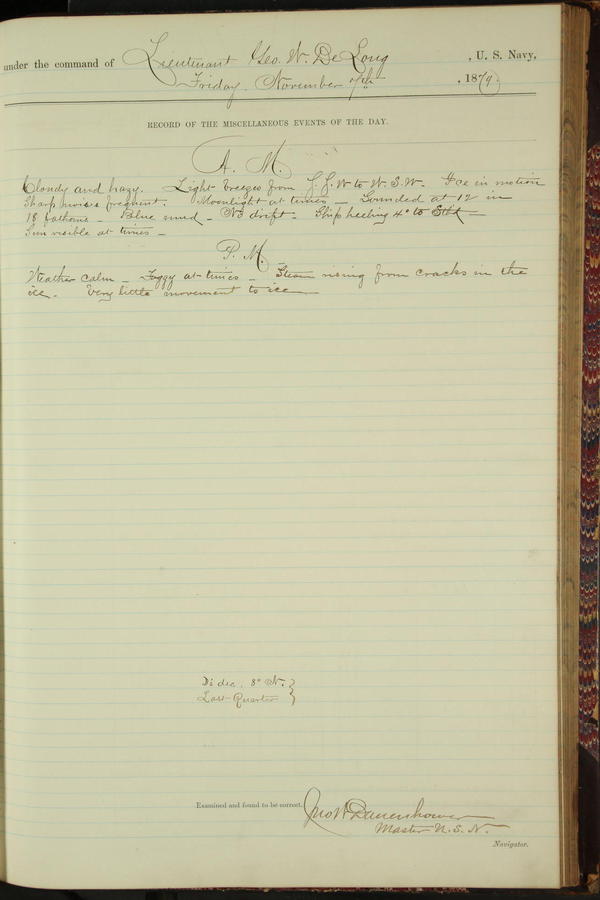 under the command of Lieutenant Geo. W. De Long , U. S. Navy,
Friday. November 7th , 1879
RECORD OF THE MISCELLANEOUS EVENTS OF THE DAY.
A. M.
Cloudy and hazy. Light breezes from S.S.W to W.S.W. Ice in motion
Sharp noises frequent. Moonlight at times — Sounded at 12 in
18 fathoms — Blue mud — No drift — Ship heeling 4° to Stb'd —
Sun visible at times —
P. M.
Weather calm — Foggy at times — Steam rising from cracks in the
ice. Very little movement to ice —
D's dec. 8° N. }
Last Quarter }
Examined and found to be correct. Jno W Danenhower
Master U.S.N.
Navigator.